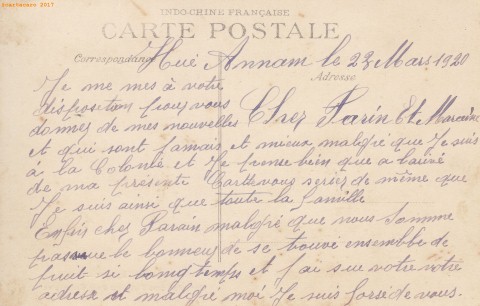 INDO-CHINE FRANÇAISE
CARTE POSTALE
Correspondance
Hué Annam le 23 Mars 1920
Adresse
Je me mes à votre
disposition pour vous
donnés de mes nouvelles
Cher Parin Et Maraine
et qui sont jamais et mieux malgré que Je suis
à la Colonie et Je pense bien que a
de ma présente Carte vous serez de même que
Je suis ainsi que toute la famille
Enfin cher Parain malgré que nous somme
le bonneur de se trouvé ensemble de
si longtemps et J'ai sue votre
adresse et malgré moi Je suis forsé de vous